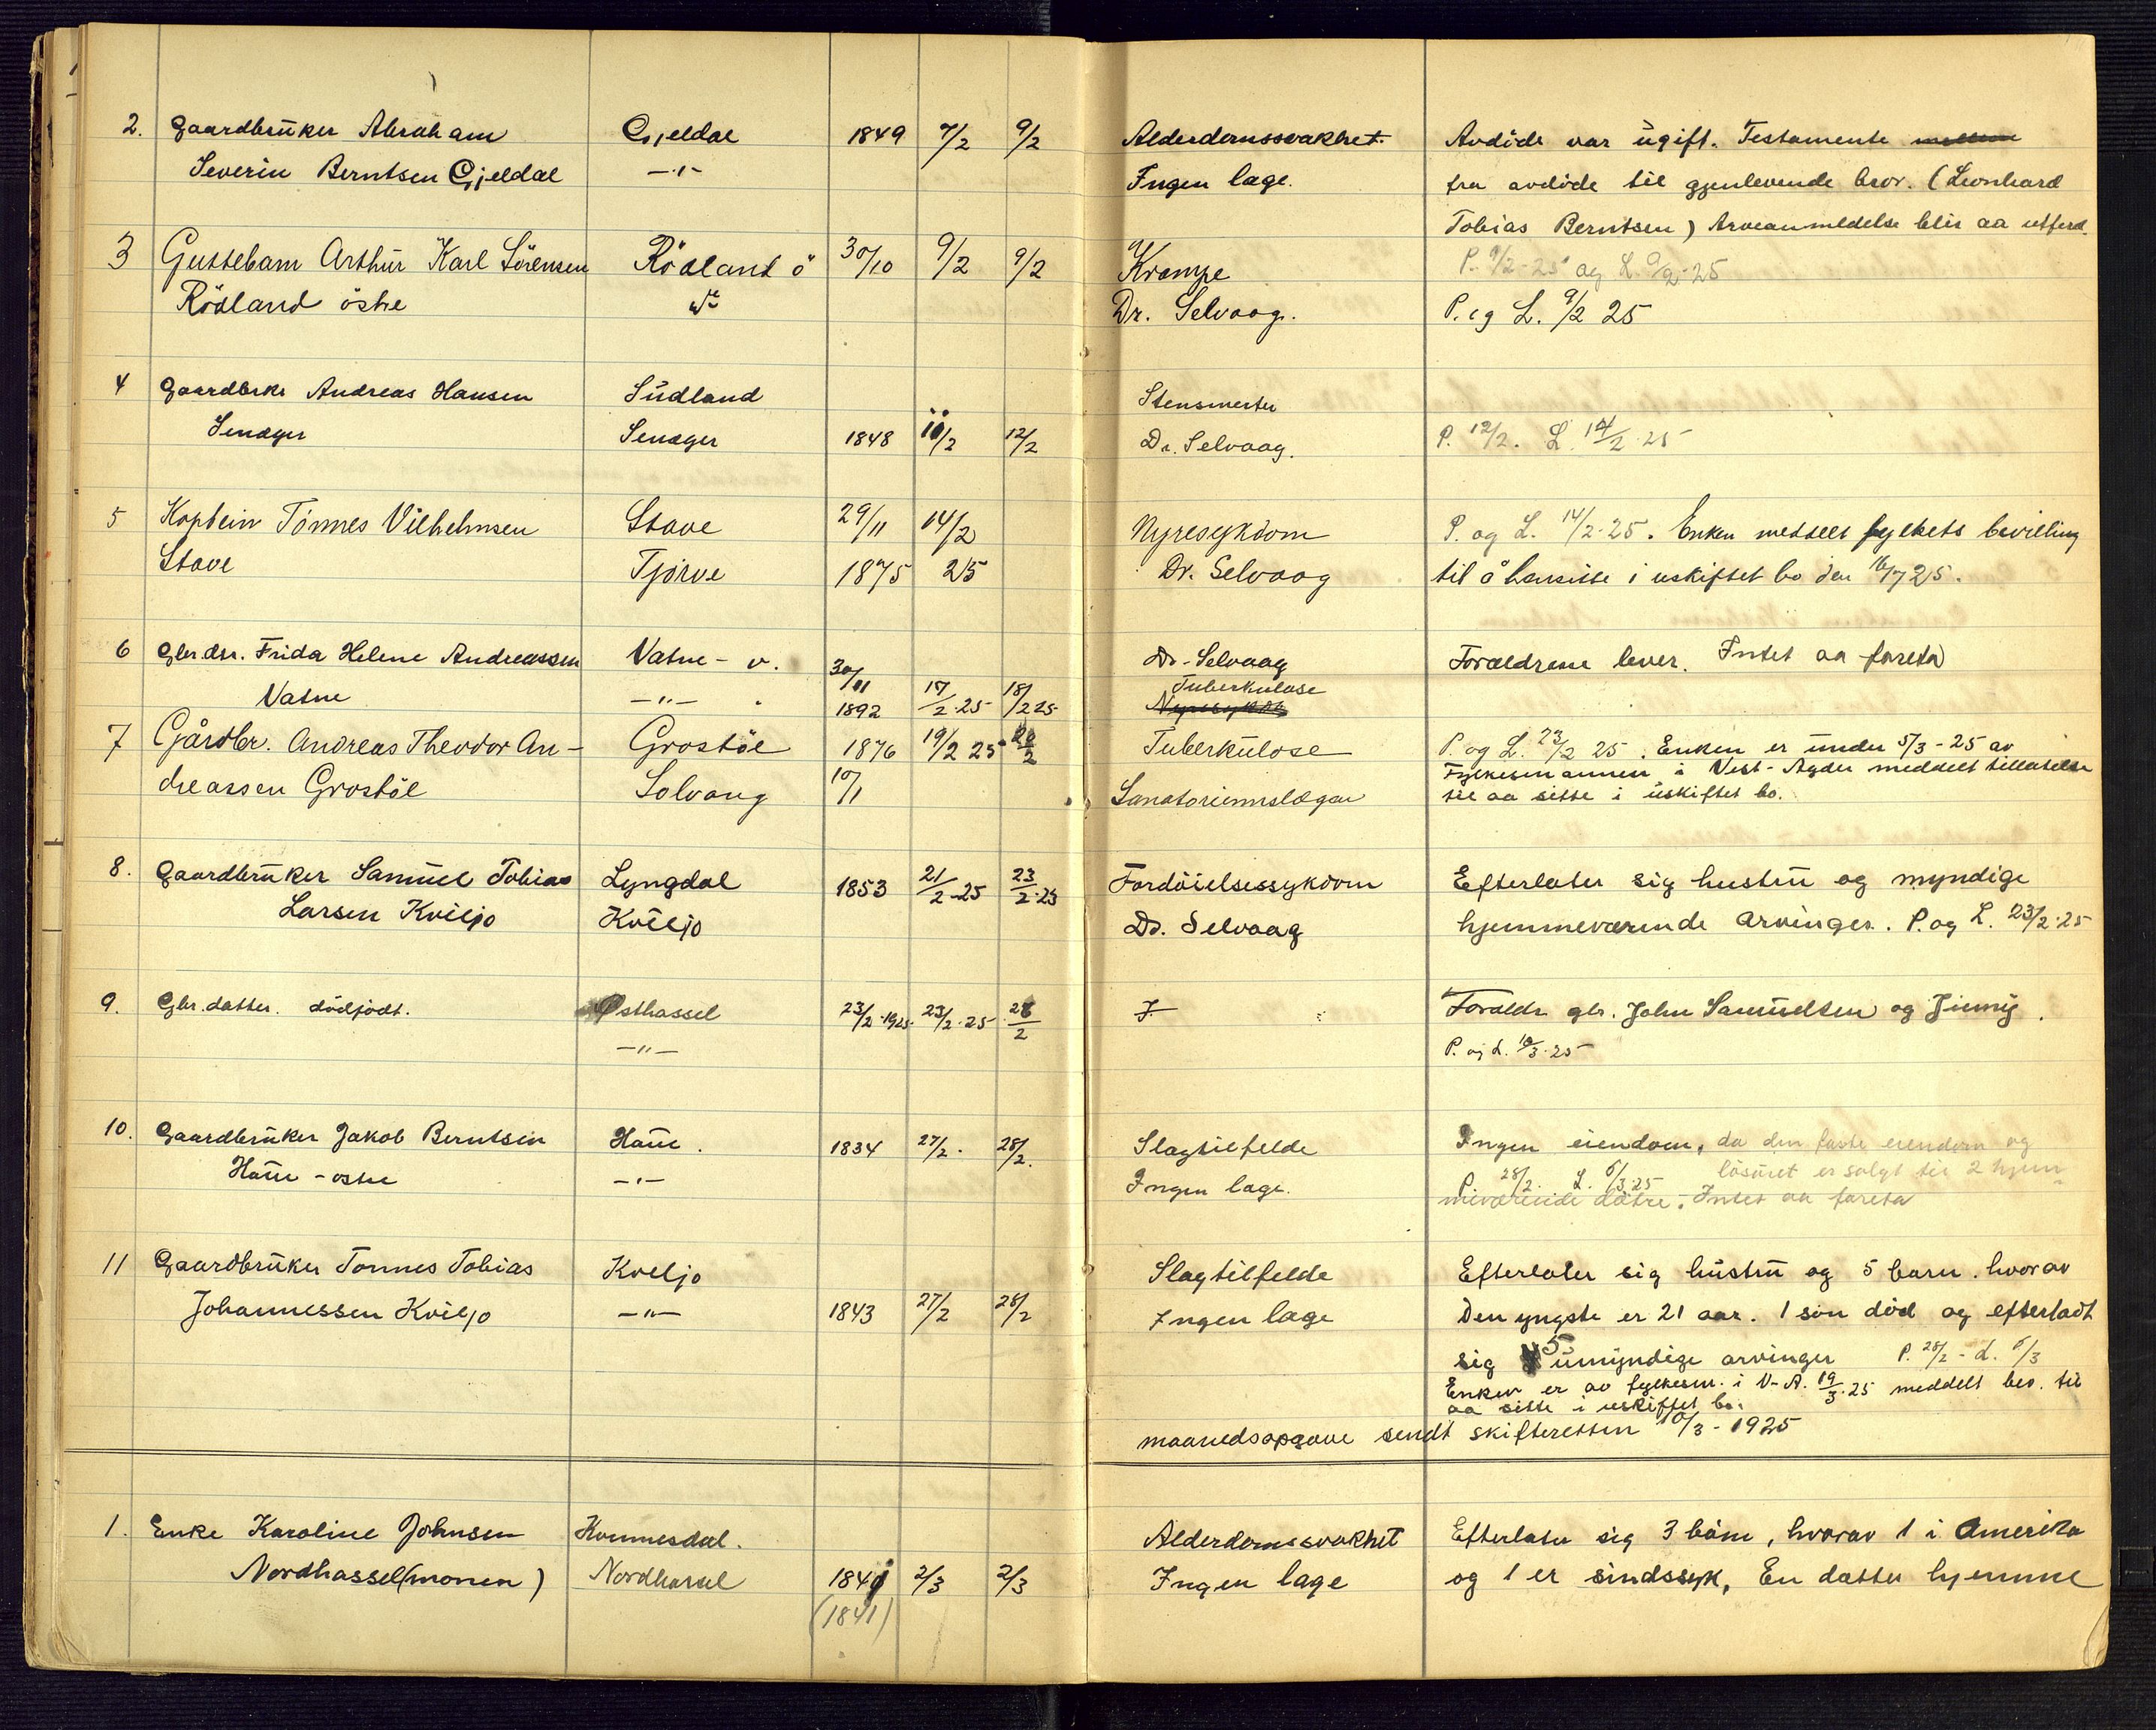 2. Gaardbruker Abraham Gjeldal 1849 7/2 9/2 Alderdomssvakhet. Avdøde var ugift. Testamente
Severin Berntsen Gjeldal —"— Ingen læge. fra avdøde til gjenlevende bror. (Leonhard
Tobias Berntsen) Arveanmeldelse blir aa utferd.
3 Guttebarn Arthur Karl Sörensen Rödland ö 30/10 9/2 9/2 Krampe P. 9/2-25 og L. 9/2-25
Rödland östre Dr. Selvaag. P. og L. 9/2 25
4 Gaardbrk Andreas Hansen Sudland Stensmerter
Penager Penager 1848 10/2 12/2 Dr. Selvaag. P. 12/2. L. 14/2-25
5 Kaptein Tönnes Vilhelmsen Stave 29/11 14/2 Nyresykdom P. og L. 14/2-25. Enken meddelt fylkets bevilling
Stave Tjörve 1875 25 Dr. Selvaag til å hensitte i uskiftet bo den 16/7 25.
6 Gbr.dtr. Frida Helene Andreassen Vatne - v. 30/11 Dr. Selvaag Forældrene lever. Intet aa foreta
Vatne —"— 1892 17/2-25 18/2 25 Tuberkulose
7 Gårdbr. Andreas Theodor An- Grostöl 1876 19/2 25 20/2 Tuberkulose P. og L. 23/2 25. Enken er under 5/3-25 av
Fylkesmannen i Vest-Agder meddelt tillatelse
dreassen Grostöl Solvang 10/1 Sanatoriumslægen til aa sitte i uskiftet bo.
8. Gaardbruker Samuel Tobias Lyngdal 1853 21/2-25 23/2-25 Fordöielsessykdom Efterlater sig hustru og myndige
Larsen Kviljo Kviljo Dr. Selvaag hjemmeværende arvinger. P. og L. 23/2-25
9. Gbr. datter. dödfödt. Østhassel 23/2-1925 23/2-25 28/2 Foreldr gbr. John Samuelsen og Jinny.
—"— P. og L. 10/3-25
10. Gaardbruker Jakob Berntsen Haue. 1834 27/2. 28/2. Slagtilfelde Ingen eiendom, da den faste eiendom og
lösöret er solgt til 2 hjem-
Haue - ostre —"— Ingen læge. P. 28/2. L. 6/3 25
meværende døtre. Intet aa foreta
11 Gaardbruker Tonnes Tobias Kviljo Slagtilfelde Efterlater sig hustru og 5 barn. hvorav
Johannessen Kviljo —"— 1843 27/2 28/2 Ingen læge Den yngste er 21 aar. 1 sön död og efterladt
sig 5 umyndige arvinger P. 28/2 - L. 6/3
Enken er av fylkesm. i V-A. 19/3-25 meddelt bev. til
aa sitte i uskiftet bo.
maanedsopgave sendt skifteretten 10/3-1925
1. Enke Karoline Johnsen Kvinnesdal. Alderdomssvakhet Efterlater sig 3 börn, hvorav 1 i Amerika
Nordhassel (monen) Nordhassel 1841 2/3 2/3 Ingen læge og 1 er sindssyk, En datter hjemme
(1841)